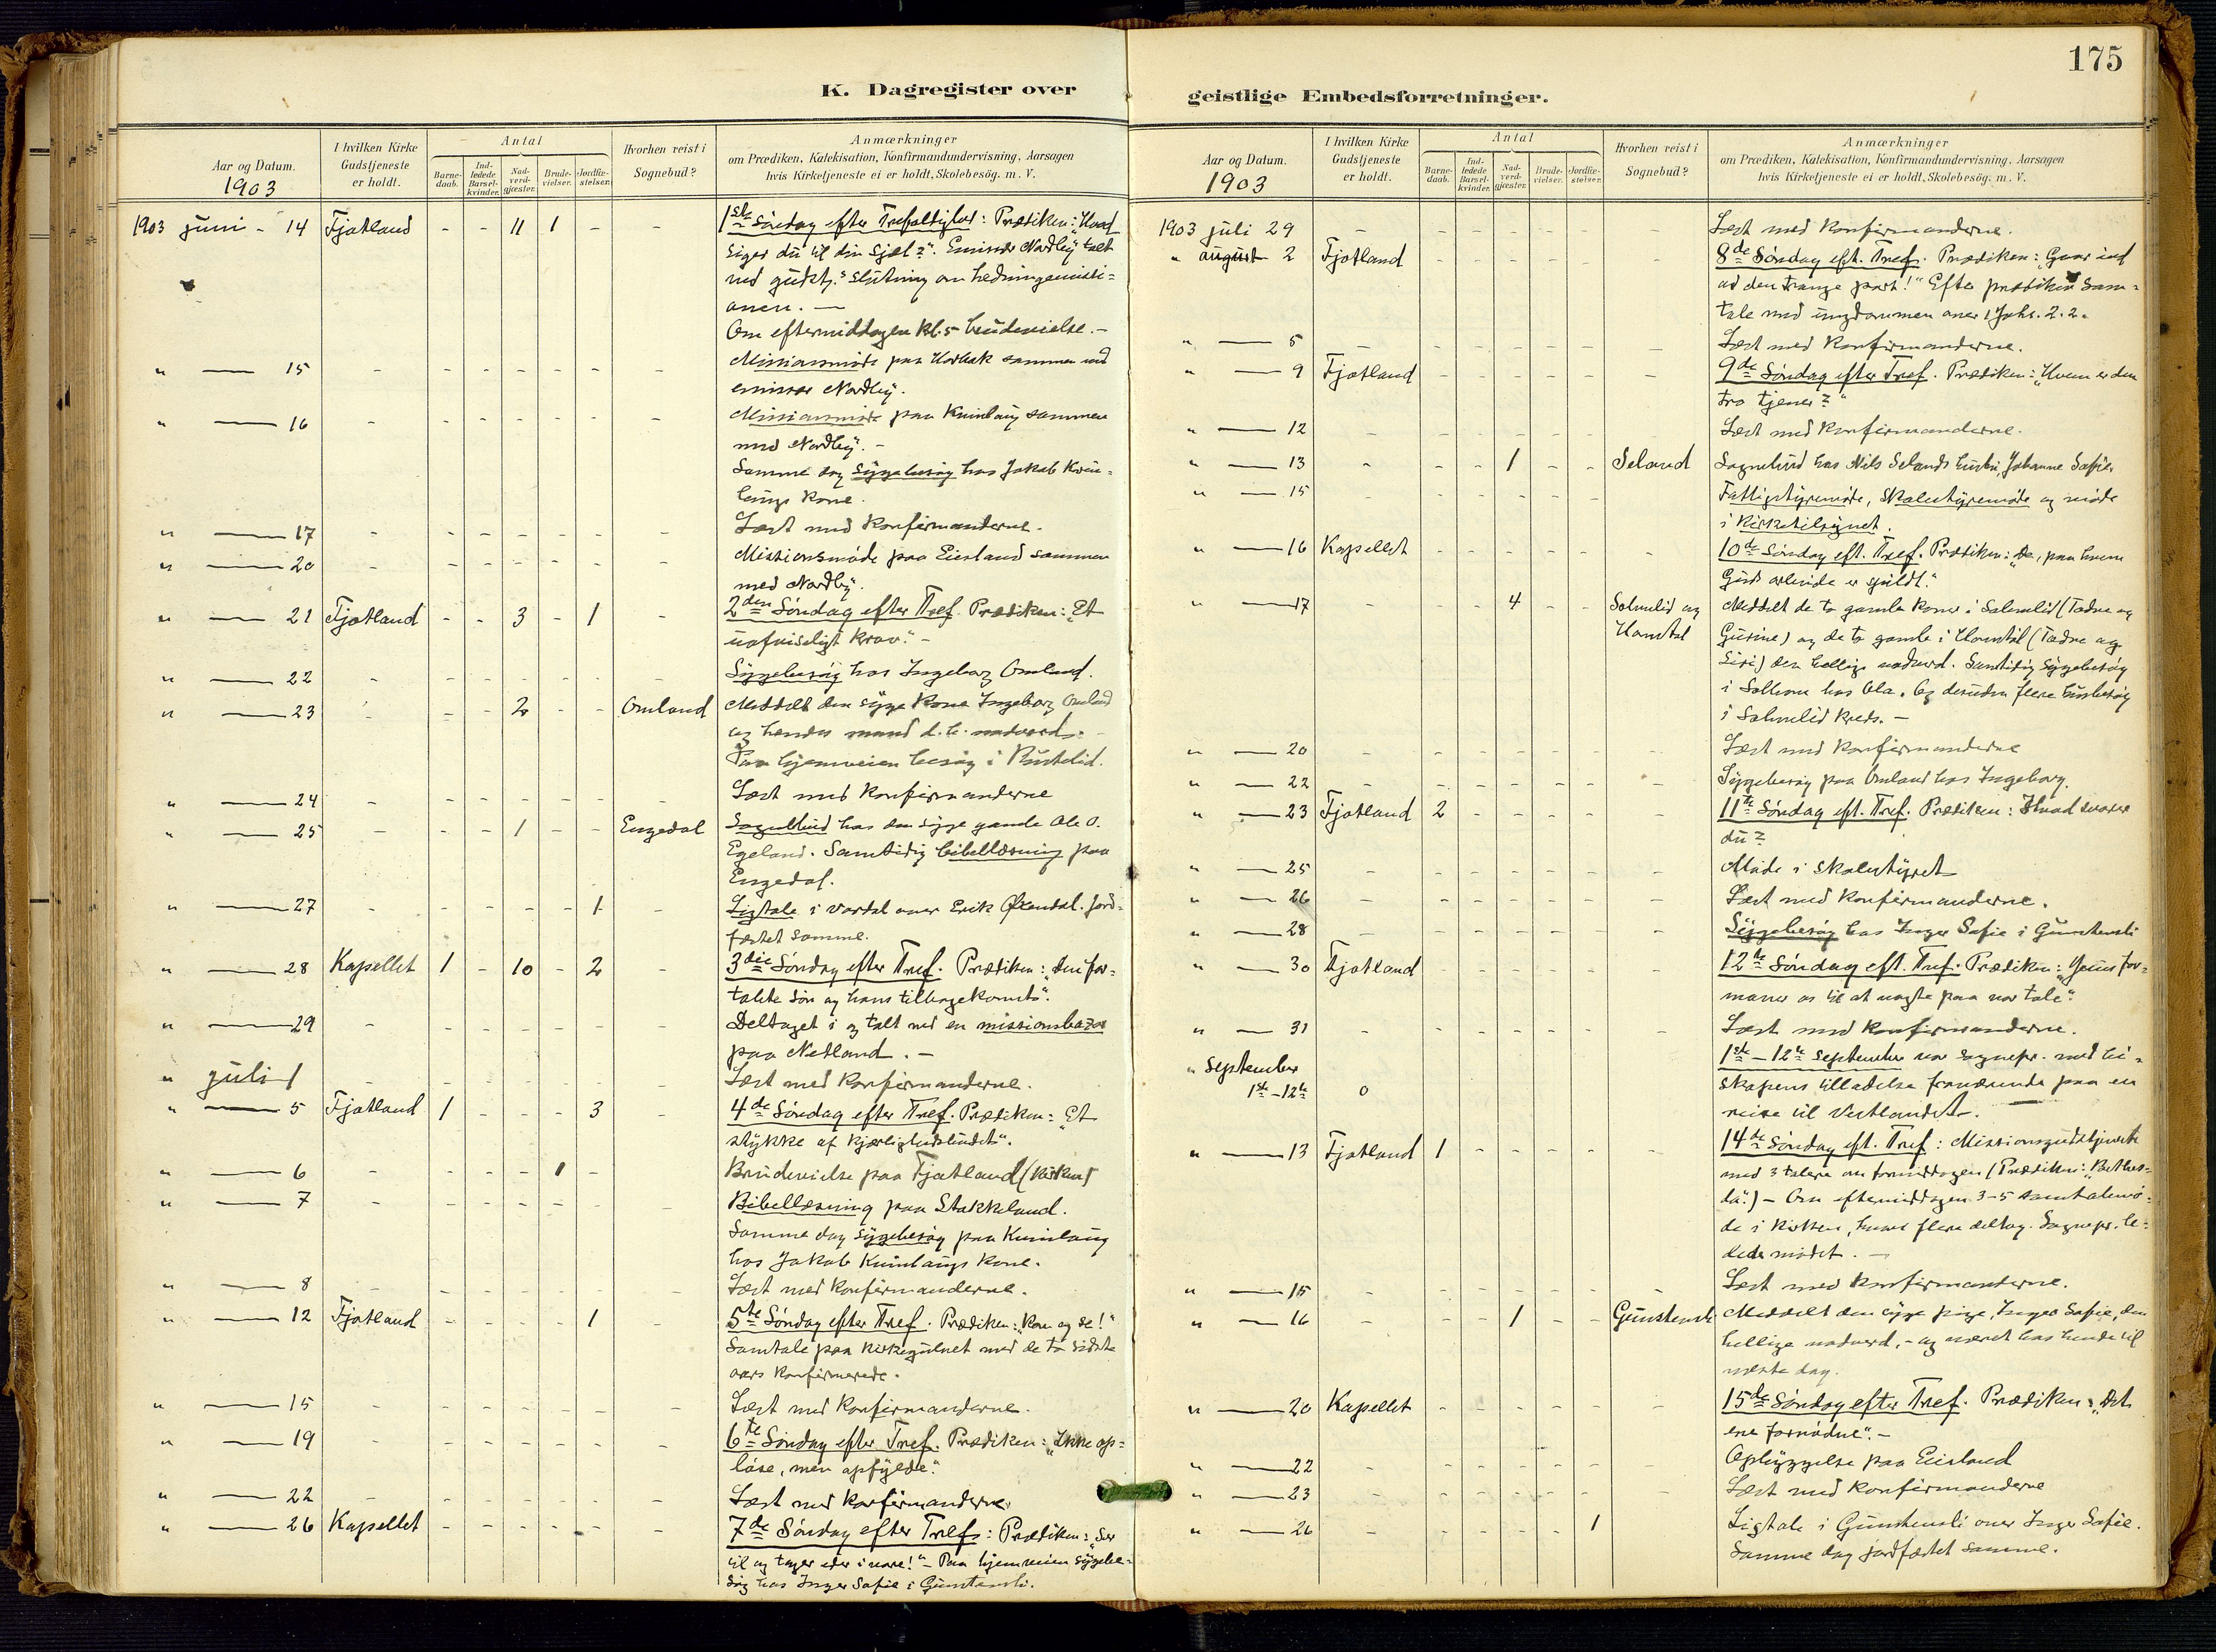 175
K. Dagregister over
geistlige Embedsforretninger.
Aar og Datum.
1903
I hvilken Kirke
Gudstjeneste
er holdt.
Antal
Barne-
daab.
Ind-
ledede
Barsel-
kvinder.
Nad-
verd-
gjæster.
Brude-
vielser.
Jordfæ-
stelser.
Hvorhen reist i
Sognebud?
Anmærkninger
om Prædiken, Katekisation, Konfirmandundervisning, Aarsagen
hvis Kirketjeneste ei er holdt, Skolebesög. m. V.
1903 juni - 14 Fjotland - - 11 1 - - 1ste Söndag efter Trefoldighed: Prædiken: "Hvad
siger du til din sjæl?". Emissær Nordby talt
ved gudstj.s slutning om hedningemissi-
onen. —
Om eftermiddagen kl. 5 brudevielse. -
" — 15 - - - - - - - Missionsmöde paa sammen med
emissær Nordby.
" — 16 - - - - - - - Missionsmöde paa Kvinlaug sammen
med Nordby. -
Samme dag sygebesög hos Jakob Kvin-
laugs kone.
" — 17 - - - - - - - Læst med konfirmanderne.
" — 20 - - - - - - - Missionsmöde paa Eierland sammen
med Nordby.
" — 21 Fjotland - - 3 - 1 - 2den Söndag efter Tref. Prædiken: "Et
uafviseligt krav." -
" — 22 - - - - - - - Sygebesög hos Ingeborg Omland.
" — 23 - - - 2 - - Omland Meddelt den syge kone Ingeborg Omland
og hendes mand d. h. nadverd. -
Paa hjemveien besög i Rustelid.
" — 24 - - - - - - - Læst med konfirmanderne
" — 25 - - - 1 - - Engedal Sognebud hos den syge gamle Ole O.
Egeland. Samtidig bibellæsning paa
Engedal.
" — 27 - - - - - 1 - Ligtale i Vordal over Erik . Jord-
fæstet samme.
" — 28 Kapellet 1 - 10 - 2 - 3die Söndag efter Tref. Prædiken: "Den for-
tabte sön og hans tilbagekomst".
" — 29 - - - - - - - Deltaget i og talt ved en missionsbazar
paa Netland. -
" juli 1 - - - - - - - Læst med konfirmanderne.
" — 5 Fjotland 1 - - - 3 - 4de Söndag efter Tref. Prædiken: "Et
stykke af kjærlighedsbudet".
" — 6 - - - - 1 - Brudevielse paa Fjotland (kirken)
" — 7 - - - - - - Bibellæsning paa Stakkeland.
Samme dag sygebesög paa Kvinlaug
hos Jakob Kvinlaugs kone.
" — 8 - - - - - - - Læst med konfirmanderne.
" — 12 Fjotland - - - - 1 - 5te Söndag efter Tref. Prædiken: "Kom og se!"
Samtale paa kirkegulvet med de to sidste
aars konfirmerede.
" — 15 - - - - - - - Læst med konfirmanderne.
" — 19 - - - - - - 6te Söndag efter Tref. Prædiken: "Ikke op-
löse, men opfylde."
" — 22 - - - - - - - Læst med konfirmanderne.
" — 26 Kapellet - - - - - - 7de Söndag efter Tref: Prædiken: "Ser
til og tager eder i vare!" - Paa hjemveien sygebe-
sög hos Inger Sofie i Gunstenli.
Aar og Datum.
1903
I hvilken Kirke
Gudstjeneste
er holdt.
Antal
Barne-
daab.
Ind-
ledede
Barsel-
kvinder.
Nad-
verd-
gjæster.
Brude-
vielser.
Jordfæ-
stelser.
Hvorhen reist i
Sognebud?
Anmærkninger
om Prædiken, Katekisation, Konfirmandundervisning, Aarsagen
hvis Kirketjeneste ei er holdt, Skolebesög. m. V.
1903 juli 29 - - - - - - - Læst med konfirmanderne.
" august 2 Fjotland - - - - - - 8de Söndag eft. Tref. Prædiken: "Gaar ind
ad den trange port!" Efter prædiken sam-
tale med ungdommen over 1 Joh. 2. 2.
" — 5 - - - - - - - Læst med konfirmanderne.
" — 9 Fjotland - - - - - - 9de Söndag efter Tref. Prædiken: "Hvem er den
tro tjener?"
" — 12 - - - - - - Læst med konfirmanderne.
" — 13 - - - 1 - - Seland Sognebud hos Nils Selands hustru, Johanne Sofie.
" — 15 - - - - - - - Fattigstyremöde, skolestyremöde og möde
i kirketilsynet.
" — 16 Kapellet - - - - - - 10de Söndag eft. Tref. Prædiken: "De, paa hvem
Guds arbeide er spildt."
" — 17 - - 4 - - Solmelid og
Homdal Meddelt de to gamle koner i Solmelid (Tadne og
Gurine) og de to gamle i Homdal (Tadne og
Siri) den hellige nadverd. Samtidig sygebesög
i hos Ola. Og desuden flere husbesög
i Solmelid kreds. -
" — 20 - - - - - - - Læst med konfirmanderne
" — 22 - - - - - - - Sygebesög paa Omland hos Ingeborg.
" — 23 Fjotland 2 - - - - - 11te Söndag eft. Tref. Prædiken: Hvad svarer
du?
" — 25 - - - - - - - Möde i skolestyret
" — 26 - - - - - - - Læst med konfirmanderne.
" — 28 - - - - - - Sygebesög hos Inger Sofie i Gunstenli
" — 30 Fjotland - - - - - - 12te Söndag eft. Tref. Prædiken: "Jesus for-
maner os til at vogte paa vor tale."
" — 31 - - - - - - - Læst med konfirmanderne.
" September
1ste - 12te 0 1ste - 12te September var sognepr. med bi-
skopens tilladelse fraværende paa en
reise til Vestlandet. —
" — 13 Fjotland 1 - - - - - 14de Söndag eft. Tref: Missionsgudstjeneste
med 3 talere om formiddagen (Prædiken: "Bethes-
da".) - Om eftermiddagen 3-5 samtalemö-
de i kirken, hvori flere deltog. Sognepr. le-
dede mödet. —
" — 15 - - - - - - - Læst med konfirmanderne.
" — 16 - - - 1 - - Gunstenli Meddelt den syge pige, Inger Sofie, den
hellige nadverd, - og været hos hende til
næste dag.
" — 20 Kapellet - - - - - - 15de Söndag efter Tref. Prædiken: "Det
ene fornödne". -
" — 22 - - - - - - Opbyggelse paa Eierland
" — 23 - - - - - - - Læst med konfirmanderne
" — 26 - - - - 1 Ligtale i Gunstenli over Inger Sofie.
Samme dag jordfæstet samme.